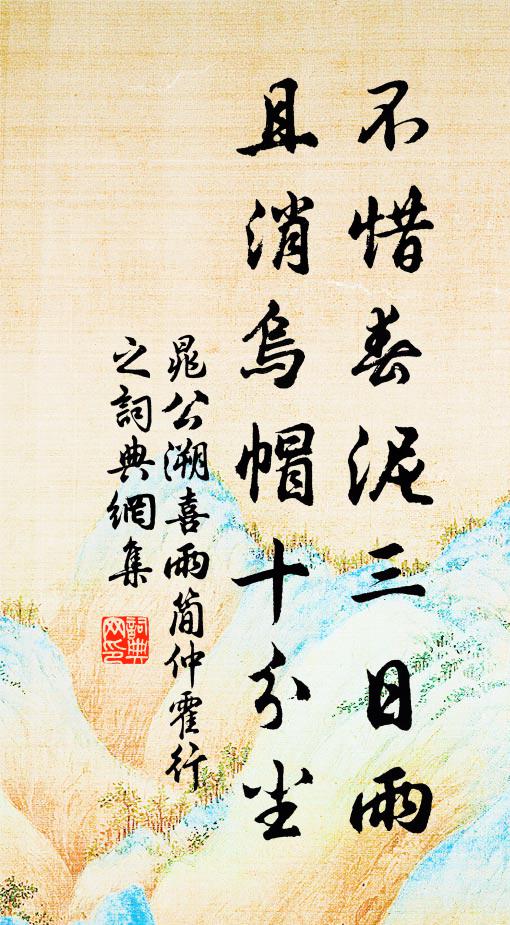 不惜春泥三日雨
且消烏帽十分尘
晁公溯喜雨簡仲霍行
之詞典網集
詞典
网印